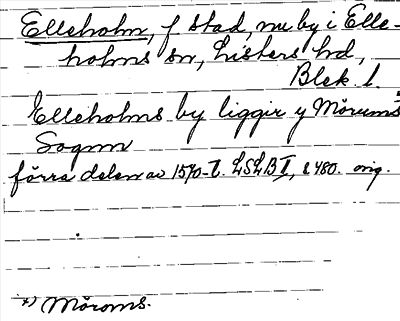 Elleholm, f stad, nu by i Elle-
holms sn, Listers hd,
Blek. l.
Elleholms by liggir y Mörums*
Sognn
förra delen av 1570-t. LSLB II, s 480. orig.
*) Möroms.